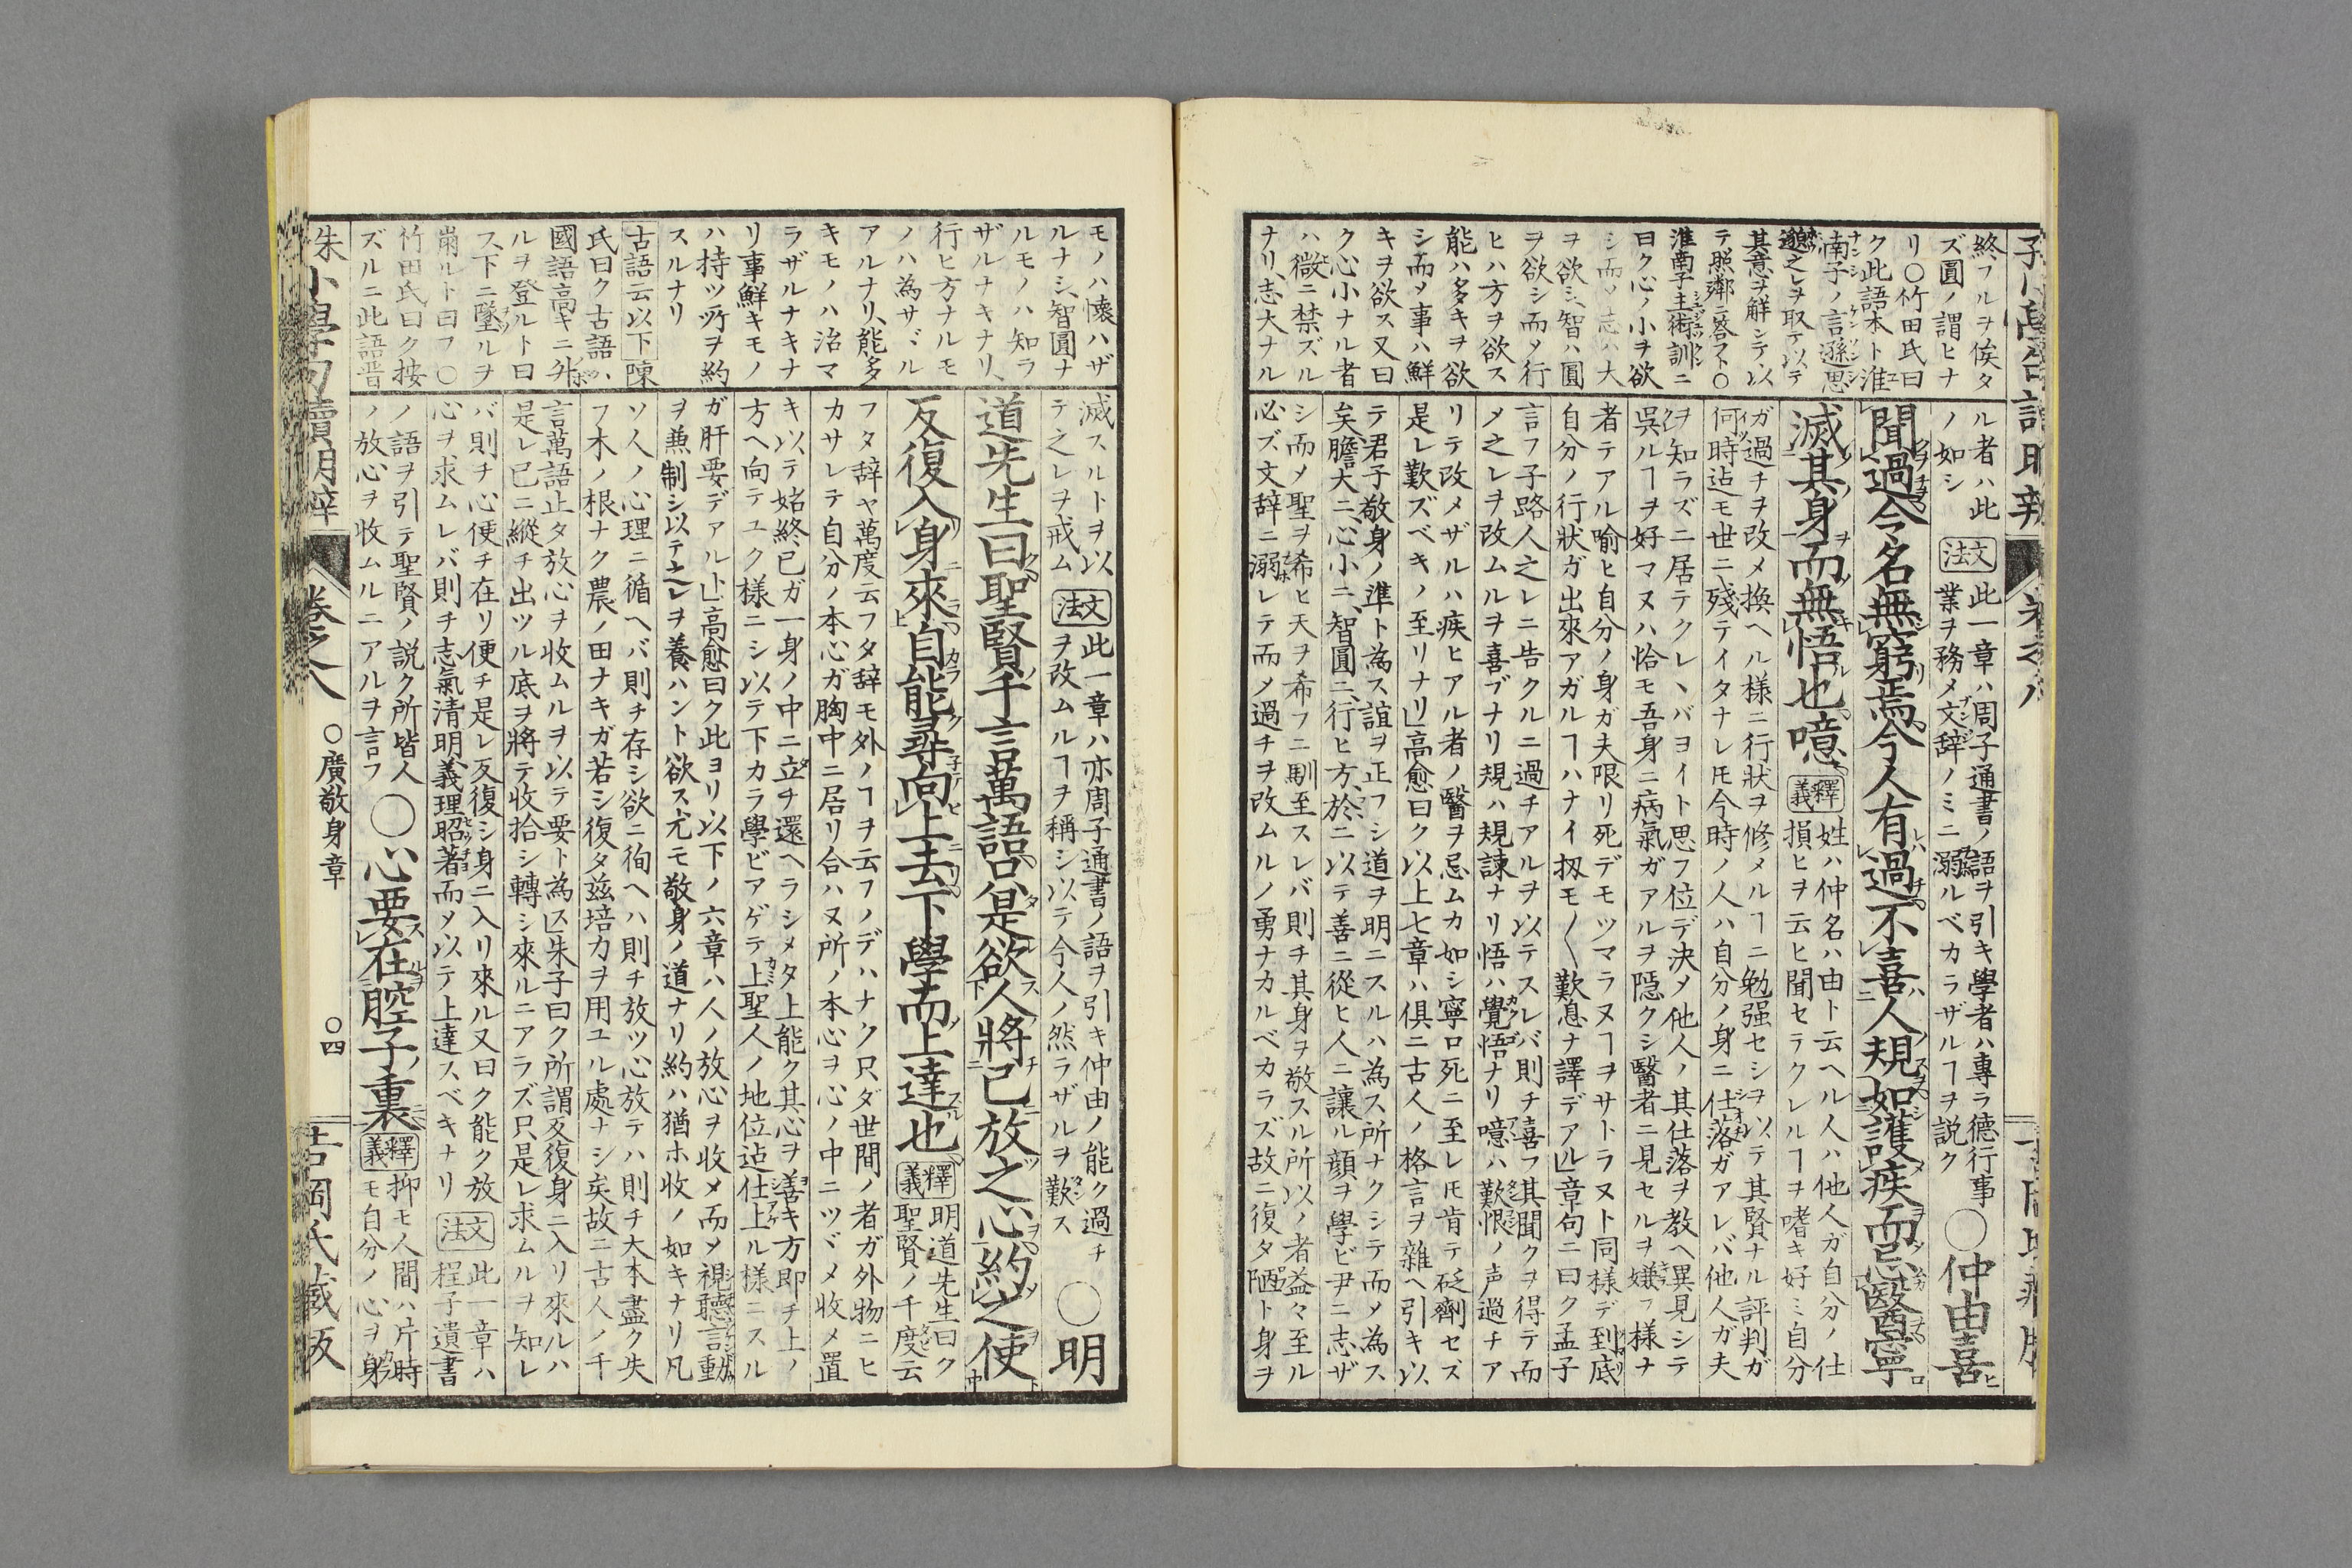 終フルヲ俟タ
ズ圓ノ謂ヒナ
リ○竹田氏曰
ク此語本ト淮
南子ノ言遜思
邈之レヲ取テ以テ
其意ヲ解シテ以
テ照鄰ニ答フト○
淮南子主術訓ニ
曰ク心ノ小ヲ欲
シ而メ志ハ大
ヲ欲シ智ハ圓
ヲ欲シ而メ行
ヒハ方ヲ欲ス
能ハ多キヲ欲
シ而メ事ハ鮮
キヲ欲ス又曰
ク心小ナル者
ハ微ニ禁ズル
ナリ志大ナル
ル者ハ此
ノ如シ
文法
此一章ハ周子通書ノ語ヲ引キ學者ハ專ラ德行事
業ヲ務メ文辞ノミニ溺ルベカラザルヿヲ説ク
○仲由喜
聞過令名無窮焉今人有過不喜人規如護疾而忌醫寧
滅其身而無悟也噫
釋義
姓ハ仲名ハ由ト云ヘル人ハ他人ガ自分ノ仕
損ヒヲ云ヒ聞セテクレルヿヲ嗜キ好ミ自分
ガ過チヲ改メ換ヘル様ニ行狀ヲ修メルヿニ勉强セシヲ以テ其賢ナル評判ガ
何時迠モ世ニ殘テイタナレ𪜈今時ノ人ハ自分ノ身ニ仕落ガアレバ他人ガ夫
ヲ知ラズニ居テクレヽバヨイト思フ位デ決メ他人ノ其仕落ヲ教ヘ異見シテ
呉ルヿヲ好マヌハ恰モ吾身ニ病氣ガアルヲ隠クシ醫者ニ見セルヲ嫌フ様ナ
者テアル喻ヒ自分ノ身ガ夫限リ死デモツマラヌヿヲサトラヌト同樣デ到底
自分ノ行狀ガ出來アガルヿハナイ扨モ〱歎息ナ譯デアル」章句ニ曰ク孟子
言フ子路人之レニ告クルニ過チアルヲ以テスレバ則チ喜フ其聞クヲ得テ而
メ之レヲ改ムルヲ喜ブナリ規ハ規諫ナリ悟ハ覺悟ナリ噫ハ歎恨ノ声過チア
リテ改メザルハ疾ヒアル者ノ醫ヲ忌ムカ如シ寧ロ死ニ至レ𪜈肯テ砭劑セズ
是レ歎ズベキノ至リナリ」高愈曰ク以上七章ハ俱ニ古人ノ格言ヲ雜ヘ引キ以
テ君子敬身ノ準ト為ス誼ヲ正フシ道ヲ明ニスルハ為ス所ナクシテ而メ為ス
矣膽大ニ心小ニ智圓ニ行ヒ方ニ於ニ以テ善ニ從ヒ人ニ讓ル顔ヲ學ビ尹ニ志ザ
シ而メ聖ヲ希ヒ天ヲ希フニ馴至スレバ則チ其身ヲ敬スル所以ノ者益々至ル
必ズ文辞ニ溺レテ而メ過チヲ改ムルノ勇ナカルベカラズ故ニ復タ陋ト身ヲ
モノハ懐ハザ
ルナシ智圓ナ
ルモノハ知ラ
ザルナキナリ
行ヒ方ナルモ
ノハ為サヾル
アルナリ能多
キモノハ治マ
ラザルナキナ
リ事鮮キモノ
ハ持ツ所ヲ約
スルナリ
古語云以下陳
氏曰ク古語ハ
國語高キニ升
ルヲ登ルト曰
ス下ニ墜ルヲ
崩ルト曰フ○
竹田氏曰ク按
ズルニ此語晋
滅スルトヲ以
テ之レヲ戒ム
文法
此一章ハ亦周子通書ノ語ヲ引キ仲由ノ能ク過チ
ヲ改ムルヿヲ稱シ以テ今人ノ然ラザルヲ歎ス
○明
道先生曰聖賢千言萬語只是欲人將已放之心約之使
反復入身來自能尋向上去下學而上達也
釋義
明道先生曰ク
聖賢ノ千度云
フタ辞ヤ萬度云フタ辞モ外ノヿヲ云フノデハナク只ダ世間ノ者ガ外物ニヒ
カサレテ自分ノ本心ガ胸中ニ居リ合ハヌ所ノ本心ヲ心ノ中ニツヾメ收メ置
キ以テ始終己ガ一身ノ中ニ立チ還ヘラシメタ上能ク其心ヲ善キ方即チ上ノ
方ヘ向テユク樣ニシ以テ下カラ學ビアゲテ上聖人ノ地位迠仕上ル樣ニスル
ガ肝要デアルト」高愈曰ク此ヨリ以下ノ六章ハ人ノ放心ヲ收メ而メ視聽言動
ヲ兼制シ以テ之レヲ養ハント欲ス尤モ敬身ノ道ナリ約ハ猶ホ收ノ如キナリ凡
ソ人ノ心理ニ循ヘバ則チ存シ欲ニ徇ヘハ則チ放ツ心放テハ則チ大本盡ク失
フ木ノ根ナク農ノ田ナキガ若シ復タ茲培力ヲ用ユル處ナシ矣故ニ古人ノ千
言萬語止タ放心ヲ收ムルヲ以テ要ト為ス」朱子曰ク所謂反復身ニ入リ來ルハ
是レ已ニ縱チ出ツル底ヲ將テ收拾シ轉シ來ルニアラズ只是レ求ムルヲ知レ
バ則チ心便チ在リ便チ是レ反復シ身ニ入リ來ル又曰ク能ク放
心ヲ求ムレバ則チ志氣清明義理昭著而メ以テ上達スベキナリ
文法
此一章ハ
程子遺書
ノ語ヲ引テ聖賢ノ説ク所皆人
ノ放心ヲ收ムルニアルヲ言フ
○心要在腔子裏
釋義
抑モ人間ハ片時
モ自分ノ心ヲ身
朱小學句讀明辨
卷之八
○廣敬身章
○四
吉岡氏藏版